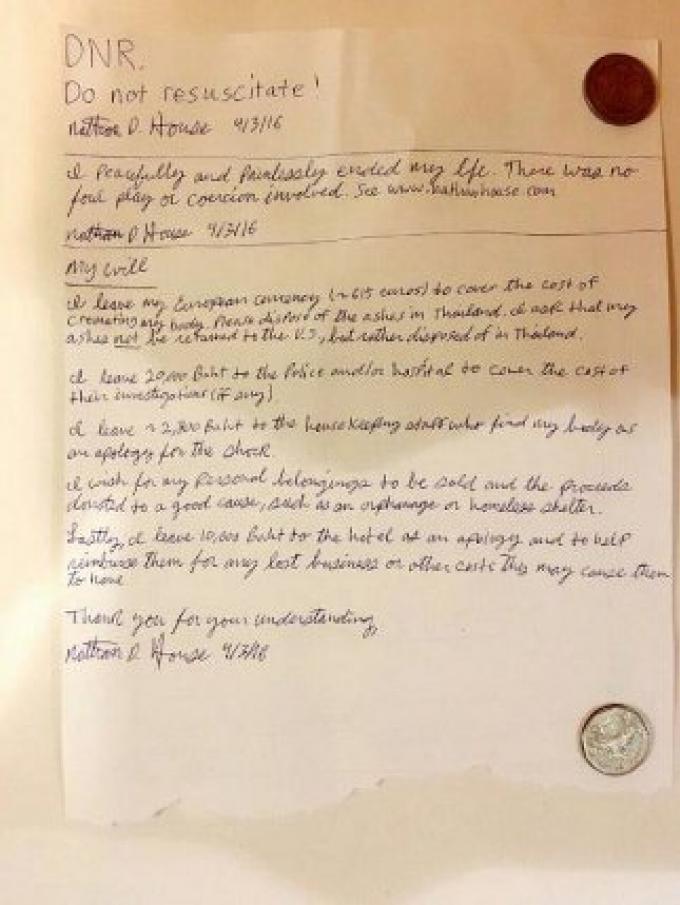 DNR.
Do not resuscitate!
Nathan D. House 9/3/16
I Peacefully and Painlessly ended my life. There was no
foul play or coercion involved. See www.nathanhouse.com
Nathan D House 9/3/16
My will
I leave my European currency (~615 euros) to cover the cost of
cremating my body. Please dispose of the ashes in Thailand. I ask that my
ashes not be returned to the U.S., but rather disposed of in Thailand.
I leave 20,000 Baht to the Police and/or hospital to cover the cost of
their investigations (if any).
I leave ~2,800 Baht to the housekeeping staff who find my body as
an apology for the shock.
I wish for my personal belongings to be sold and the proceeds
donated to a good cause, such as an orphanage or homeless shelter.
Lastly, I leave 10,000 Baht to the hotel as an apology and to help
reimburse them for any lost business or other costs this may cause them
to have
Thank you for your understanding,
Nathan D House 9/3/16